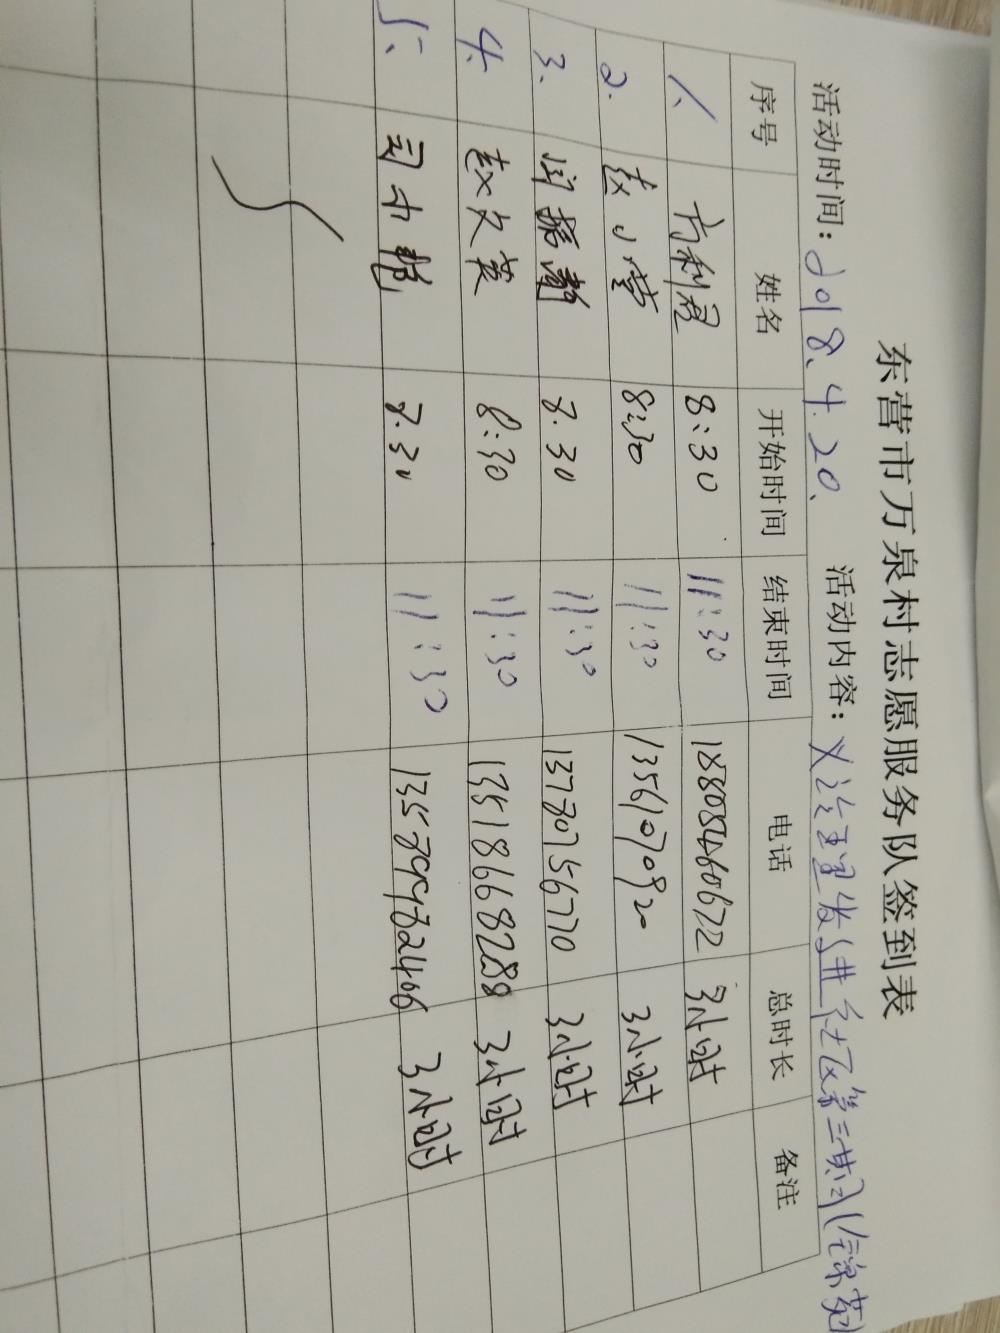 东营市万泉村志愿服务队签到表
活动时间：2018.4.20. 活动内容：义诊理发进社区第三期(锦苑
序号 姓名 开始时间 结束时间 电话 总时长 备注
1、 8:30 11:30 18805460672 3小时
2. 赵小营 8:30 11:30 13561070920 3小时
3、 8.30 11:30 13780756770 3小时
4. 赵文英 8:30 11:30 13518668288 3小时
5、 8.30 11:30 3小时